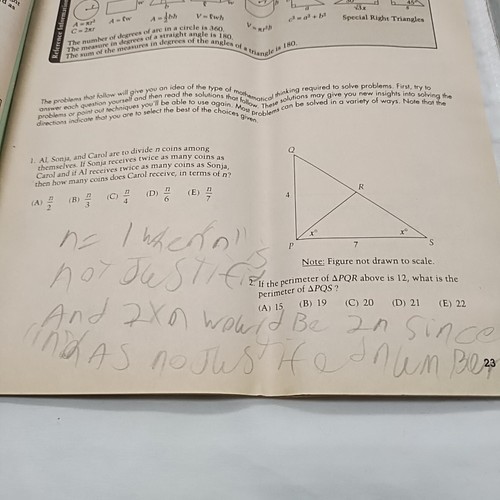 Reference Information
A = πr²
C = 2πr
A = ℓw
A = ½bh
V = ℓwh
V = πr²h
c² = a² + b²
Special Right Triangles
The number of degrees of arc in a circle is 360.
The measure in degrees of a straight angle is 180.
The sum of the measures in degrees of the angles of a triangle is 180.
The problems that follow will give you an idea of the type of mathematical thinking required to solve problems. First, try to
answer each question yourself and then read the solutions that follow. These solutions may give you new insights into solving the
problems or point out techniques you'll be able to use again. Most problems can be solved in a variety of ways. Note that the
directions indicate that you are to select the best of the choices given.
1. Al, Sonja, and Carol are to divide n coins among
themselves. If Sonja receives twice as many coins as
Carol and if Al receives twice as many coins as Sonja,
then how many coins does Carol receive, in terms of n?
(A) n/2 (B) n/3 (C) n/4 (D) n/6 (E) n/7
Q
4
R
P
x°
x°
7
S
Note: Figure not drawn to scale.
2. If the perimeter of △PQR above is 12, what is the
perimeter of △PQS ?
(A) 15 (B) 19 (C) 20 (D) 21 (E) 22
n = 1 when "n" is
not Justified
And 2xn would Be 2n since
has no Justified number
23